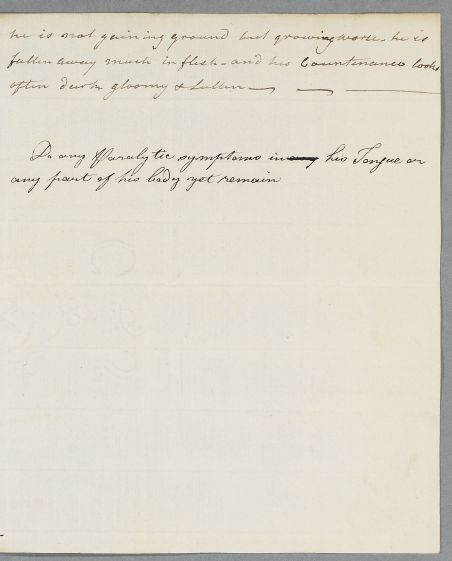 he is not gaining ground but growing worse - he is
fallen away much in flesh - and his Countenance looks
often dark gloomy & Sullen —
Do any Paralytic symptoms in his Tongue or
any part of his body yet remain